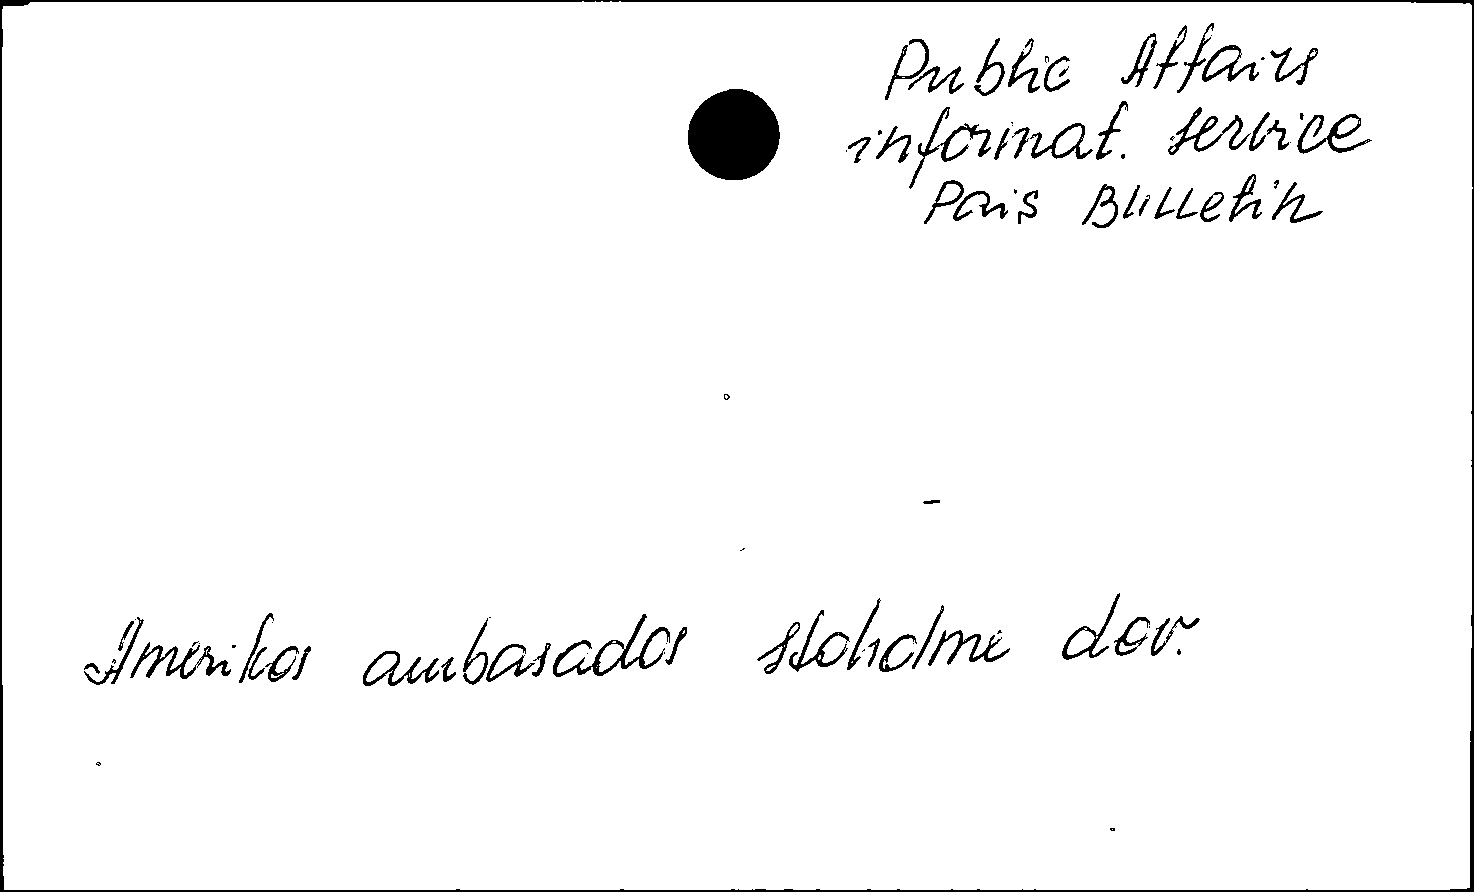 Public Affairs
informat. service
Pais Bulletin
Amerikos ambasados Stoholme dov.